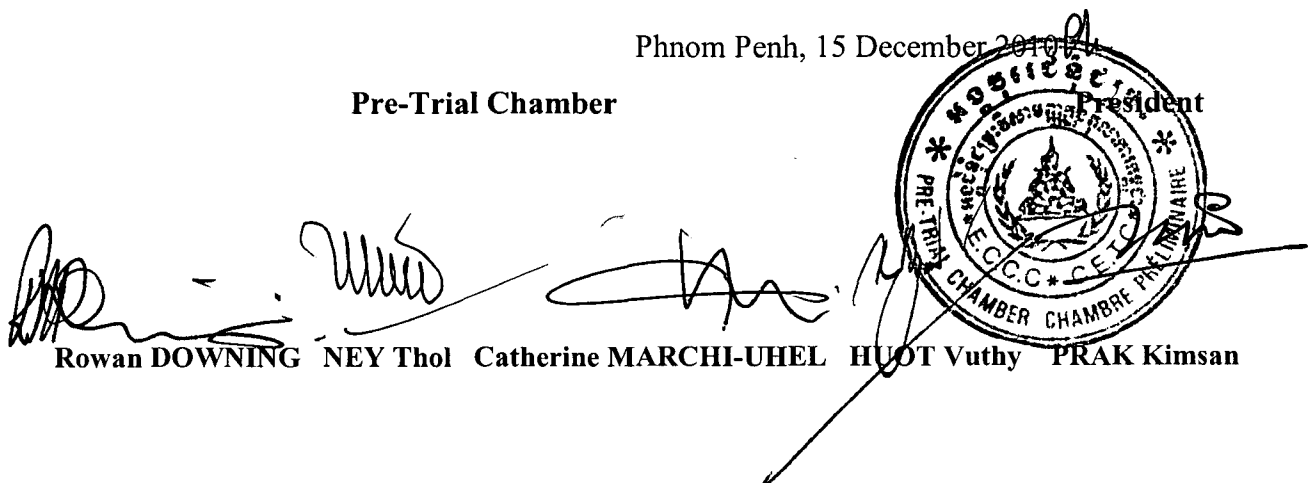 Phnom Penh, 15 December 2010
Pre-Trial Chamber
President
PRE-TRIAL CHAMBER CHAMBRE PRÉLIMINAIRE
E.C.C.C * C.E.T.C
Rowan DOWNING NEY Thol Catherine MARCHI-UHEL HUOT Vuthy PRAK Kimsan